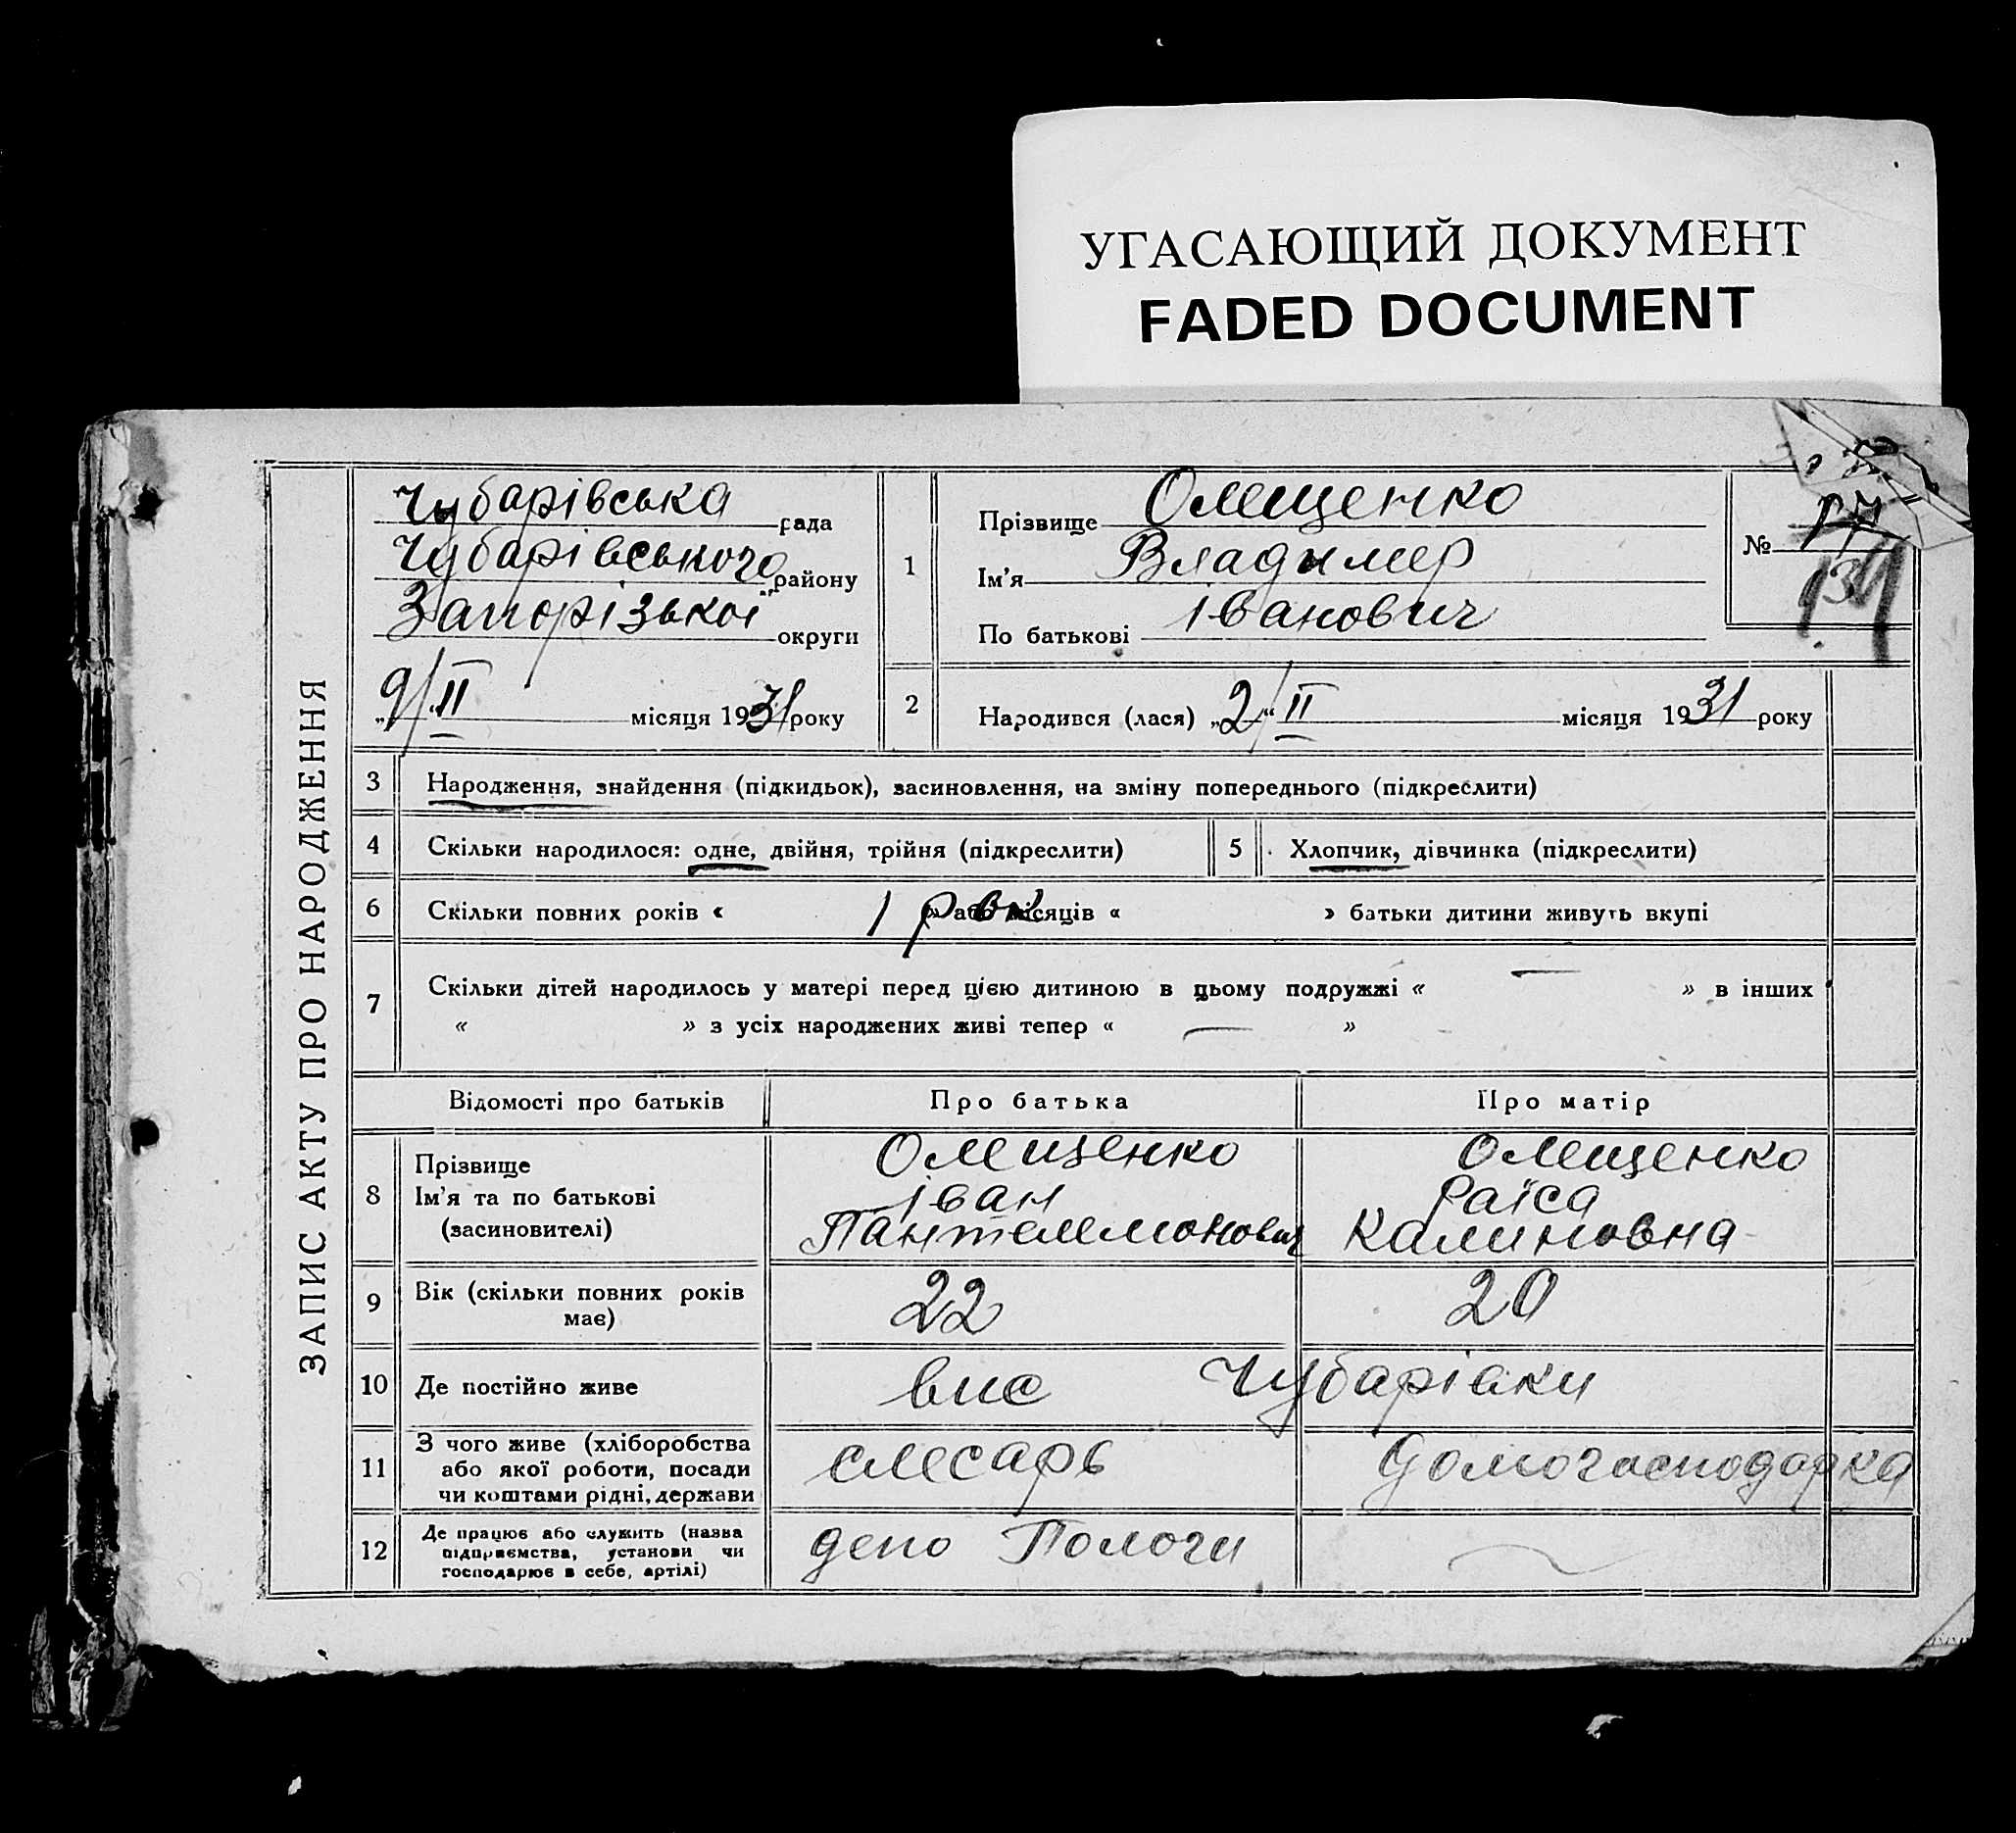 УГАСАЮЩИЙ ДОКУМЕНТ
FADED DOCUMENT
ЗАПИС АКТУ ПРО НАРОДЖЕННЯ
Чубарівська рада
Чубарівського району
Запорізької округи
„9/“ II місяця 1931 року
1 Прізвище Омещенко
Ім'я Владимер
По батькові Іванович
№ 134
2 Народився (лася) „2/“ II місяця 1931 року
3 Народження, знайдення (підкидьок), засиновлення, на зміну попереднього (підкреслити)
4 Скільки народилося: одне, двійня, трійня (підкреслити)
5 Хлопчик, дівчинка (підкреслити)
6 Скільки повних років « 1 » або місяців « » батьки дитини живуть вкупі
7 Скільки дітей народилось у матері перед цією дитиною в цьому подружжі « — » в інших
« » з усіх народжених живі тепер « — »
Відомості про батьків Про батька Про матір
8 Прізвище Омещенко Омещенко
Ім'я та по батькові Іван Раїса
(засиновителі) Пантелемонович Калиновна
9 Вік (скільки повних років має) 22 20
10 Де постійно живе вис Чубарівки
11 З чого живе (хліборобства
або якої роботи, посади слесарь домогосподарка
чи коштами рідні, держави
12 Де працює або служить (назва
підприємства, установи чи депо Пологи
господарює в себе, артілі)